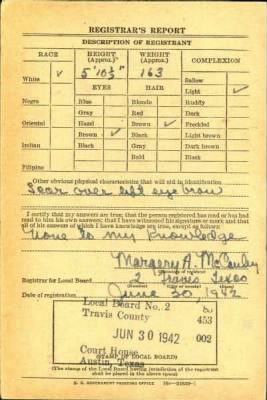 REGISTRAR'S REPORT
DESCRIPTION OF REGISTRANT
RACE HEIGHT (Approx.) WEIGHT (Approx.) COMPLEXION
5' 10½" 163
White ✓ Sallow
EYES HAIR Light ✓
Negro Blue Blonde Ruddy
Gray Red Dark
Oriental Hazel Brown ✓ Freckled
Brown ✓ Black Light brown
Indian Black Gray Dark brown
Bald Black
Filipino
Other obvious physical characteristics that will aid in identification
Scar over left eye brow
I certify that my answers are true; that the person registered has read or has had
read to him his own answers; that I have witnessed his signature or mark and that
all of his answers of which I have knowledge are true, except as follows:
None to my knowledge
Margery A. McCauley
Registrar for Local Board 2 Travis Texas
Date of registration June 30 1942
Local Board No. 2 89
Travis County 453
JUN 30 1942 002
Court House
Austin, Texas
(STAMP OF LOCAL BOARD)
(The stamp of the Local Board having jurisdiction of the registrant
shall be placed in the above space)
U. S. GOVERNMENT PRINTING OFFICE